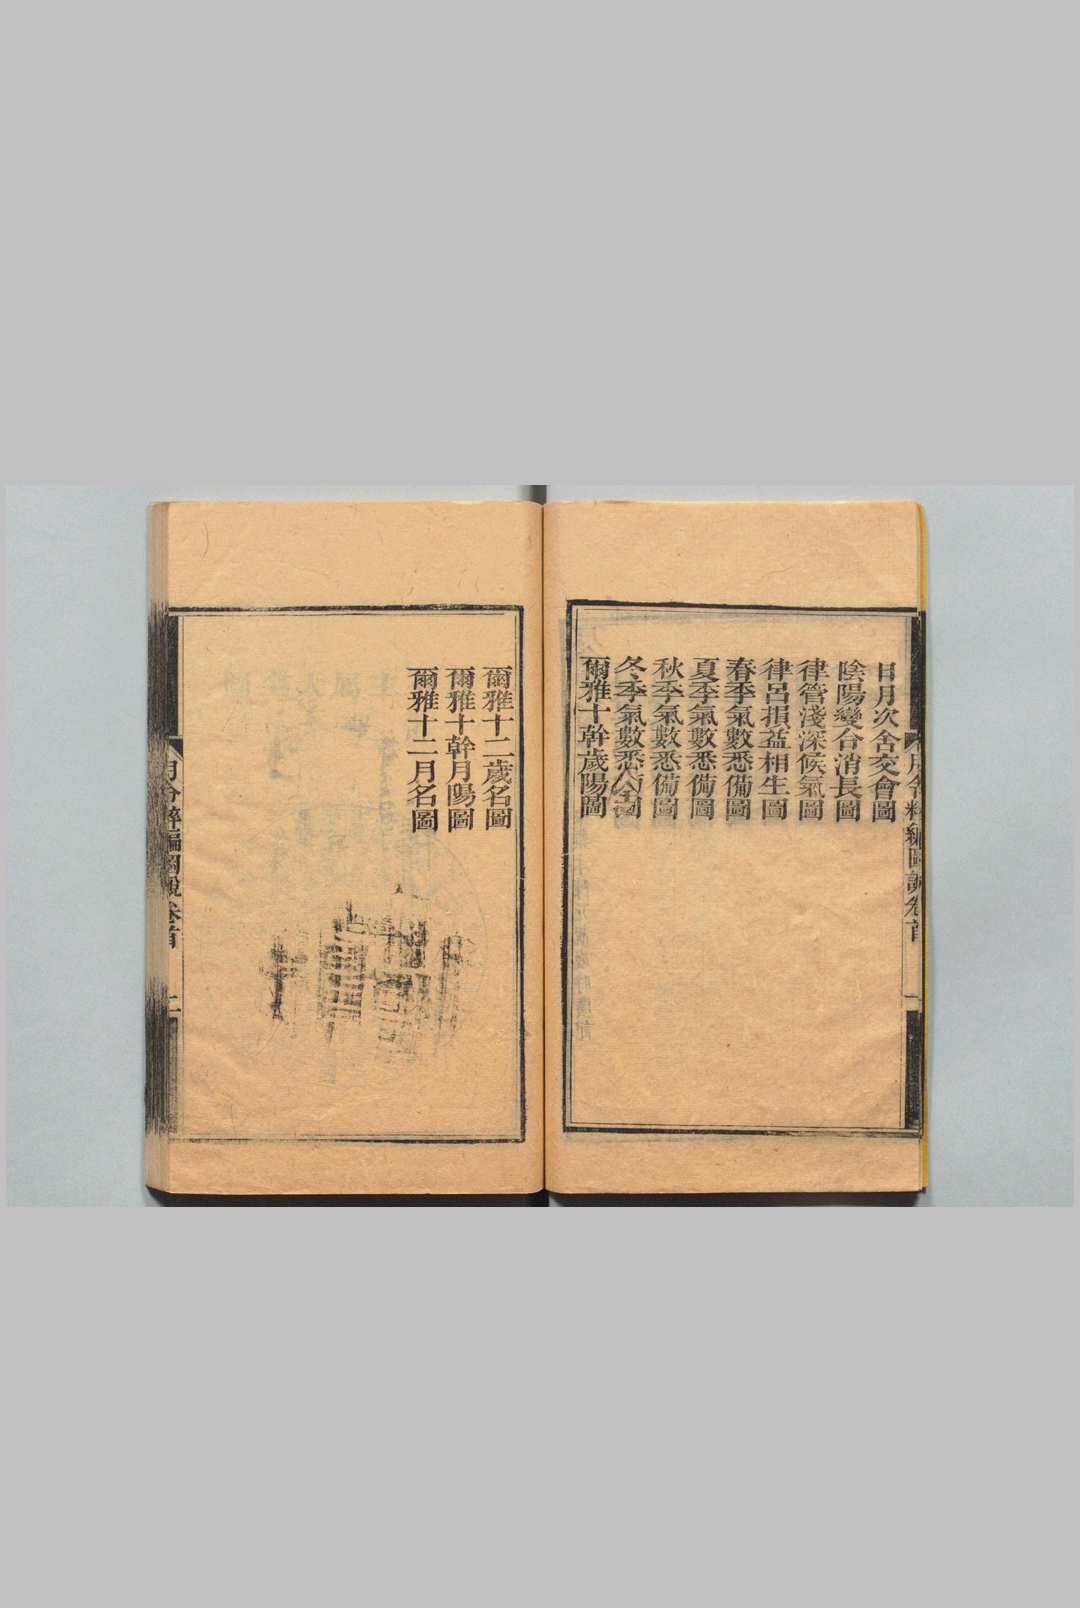 日月次舍交會圖
陰陽變合消長圖
律管淺深候氣圖
律呂損益相生圖
春季氣數悉備圖
夏季氣數悉備圖
秋季氣數悉備圖
冬季氣數悉備圖
爾雅十幹歲陽圖
爾雅十二歲名圖
爾雅十幹月陽圖
爾雅十二月名圖
月令粹編圖說卷首
一
月令粹編圖說卷首
二